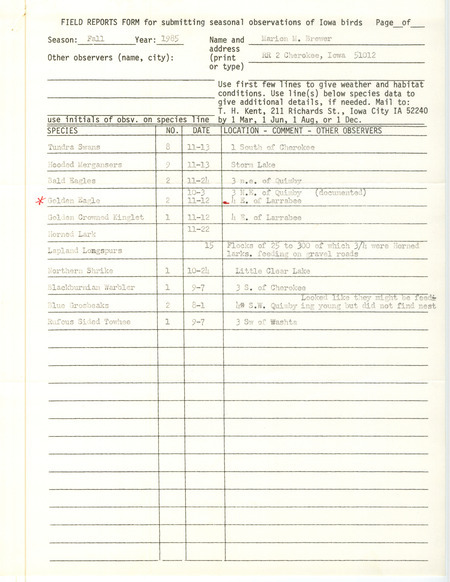 FIELD REPORTS FORM for submitting seasonal observations of Iowa birds Page__of__
Season: Fall Year: 1985 Name and address (print or type) Marion M. Brewer
RR 2 Cherokee, Iowa 51012
Other observers (name, city):
Use first few lines to give weather and habitat
conditions. Use line(s) below species data to
give additional details, if needed. Mail to:
T. H. Kent, 211 Richards St., Iowa City IA 52240
use initials of obsv. on species line by 1 Mar, 1 Jun, 1 Aug, or 1 Dec.
SPECIES NO. DATE LOCATION - COMMENT - OTHER OBSERVERS
Tundra Swans 8 11-13 1 South of Cherokee
Hooded Mergansers 9 11-13 Storm Lake
Bald Eagles 2 11-24 3 n.e. of Quimby
10-3 3 N.E. of Quimby (documented)
* Golden Eagle 2 11-12 4 E. of Larrabee
Golden Crowned Kinglet 1 11-12 4 E. of Larrabee
Horned Lark 11-22
Lapland Longspurs 15 Flocks of 25 to 300 of which 3/4 were Horned
larks, feeding on gravel roads
Northern Shrike 1 10-24 Little Clear Lake
Blackburnian Warbler 1 9-7 3 S. of Cherokee
Looked like they might be feed-
Blue Grosbeaks 2 8-1 S.W. Quimby ing young but did not find nest
Rufous Sided Towhee 1 9-7 3 Sw of Washta